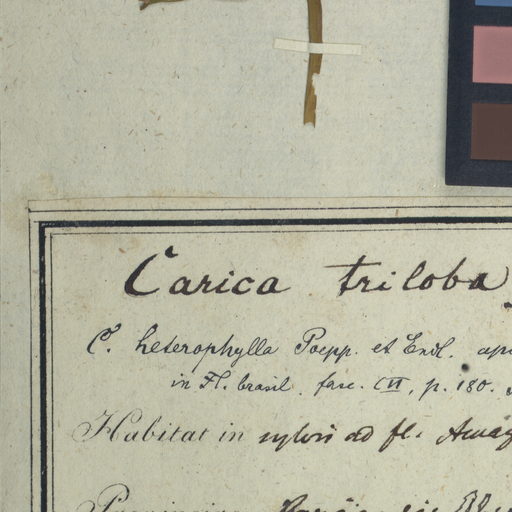 Carica triloba
C. heterophylla Poepp. et Endl. ap
in Fl. brasil. fasc. CVI, p. 180.
Habitat in sylvis ad fl. Amaz